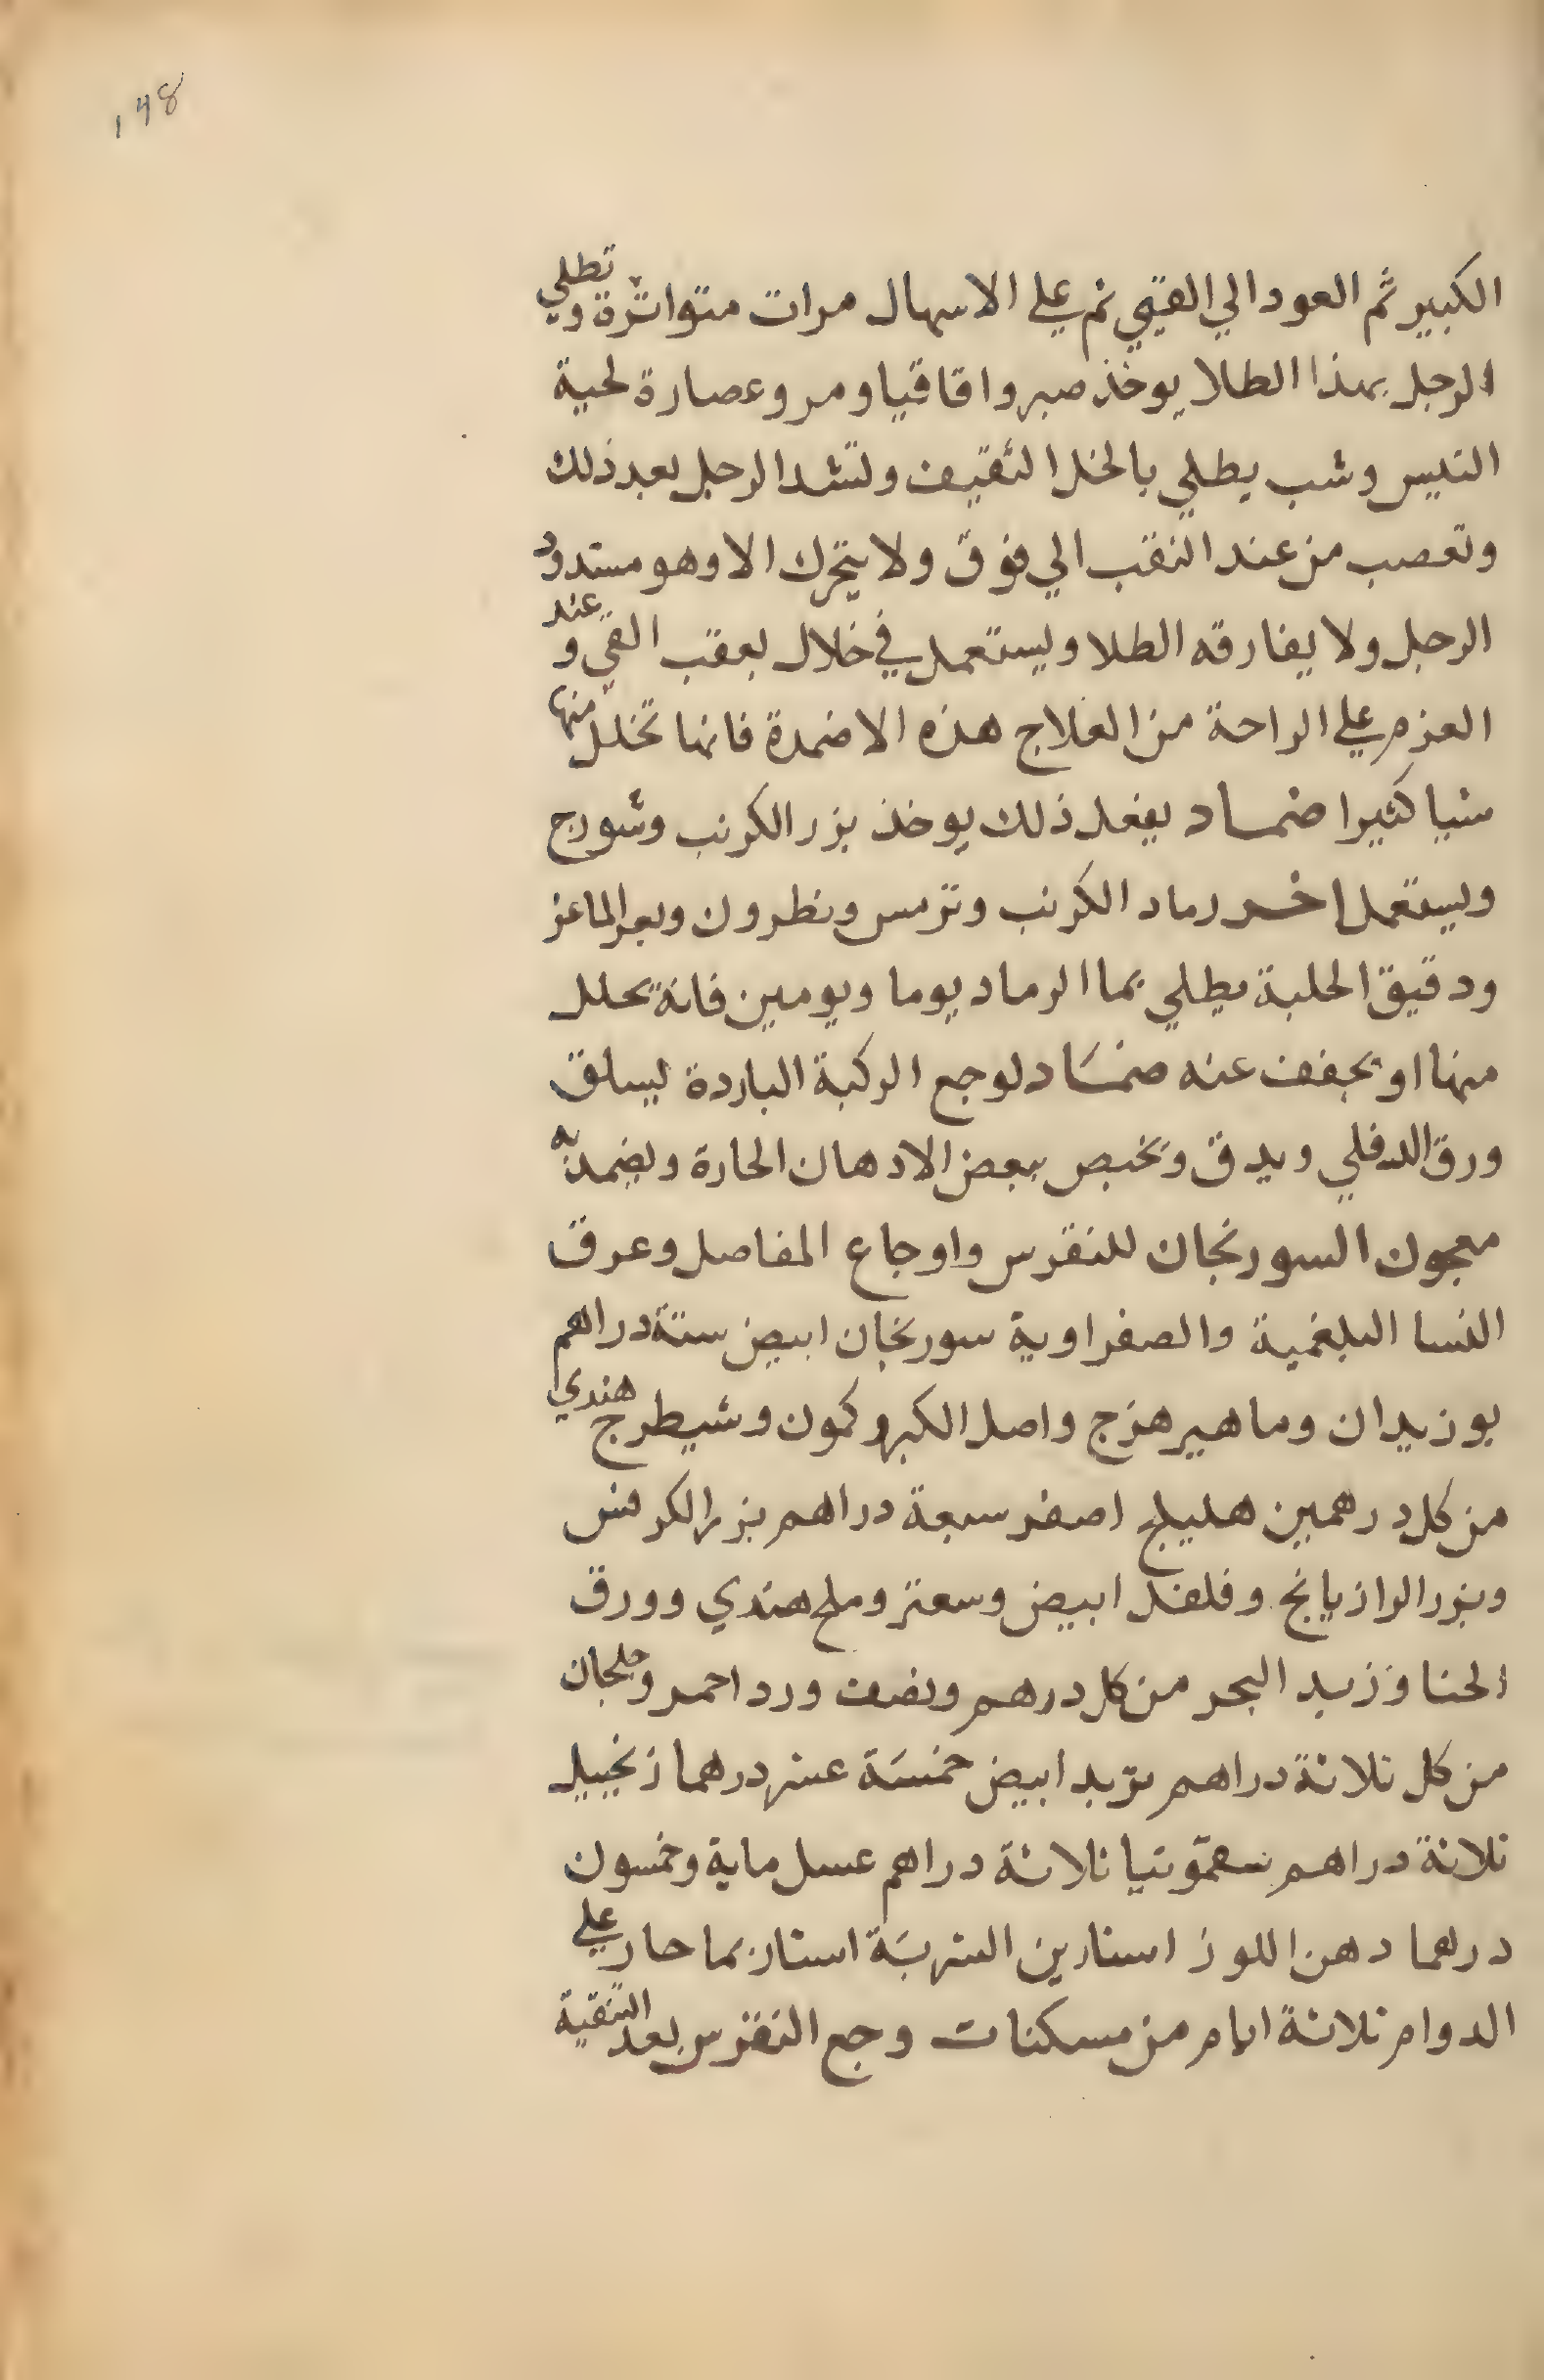 148
الكبير ثم العود الي القيي ثم علي الاسهال مرات متواترة وتطلي
الرجل بهذا الطلا يوخذ صبر واقاقيا ومر وعصارة لحية
التيس وشب يطلي بالخل الثقيف ولتشد الرجل بعد ذلك
وتعصب من عند النقب الي فوق ولا يتحرك الا وهو مشدود
الرجل ولا يفارقه الطلا ويستعمل في خلال بعقب القي وعند
العزم علي الراحة من العلاج هذه الاضمدة فانها تحلل منها
شيا كثيرا ضماد يفعل ذلك يوخذ بزر الكرنب وشورج
ويستعمل اخر رماد الكرنب وترمس ونطرون وبعر الماعز
ودقيق الحلبة يطلي بما الرماد يوما ويومين فانه يحلل
منها او يجفف عنه ضماد لوجع الركبة الباردة ليسلق
ورق الدفلي ويدق وتخبص ببعض الادهان الحارة ويضمد به
معجون السورنجان للنقرس واوجاع المفاصل وعرق
النسا البلغمية والصفراوية سورنجان ابيض ستة دراهم
بوزيدان وماهيرهزج واصل الكبر وكمون وشيطرج هندي
من كل درهمين هليلج اصفر سبعة دراهم بزر الكرفس
وبزر الرازيانج وفلفل ابيض وسعتر وملح هندي وورق
الحنا وزبد البحر من كل درهم ونصف ورد احمر وخلجان
من كل ثلاثة دراهم تربد ابيض خمسة عشر درهما زنجبيل
ثلاثة دراهم سقمونيا ثلاثة دراهم عسل ماية وخمسون
درهما دهن اللوز استارين الشربة استار بما حار علي
الدوام ثلاثة ايام من مسكنات وجع النقرس بعد التنقية